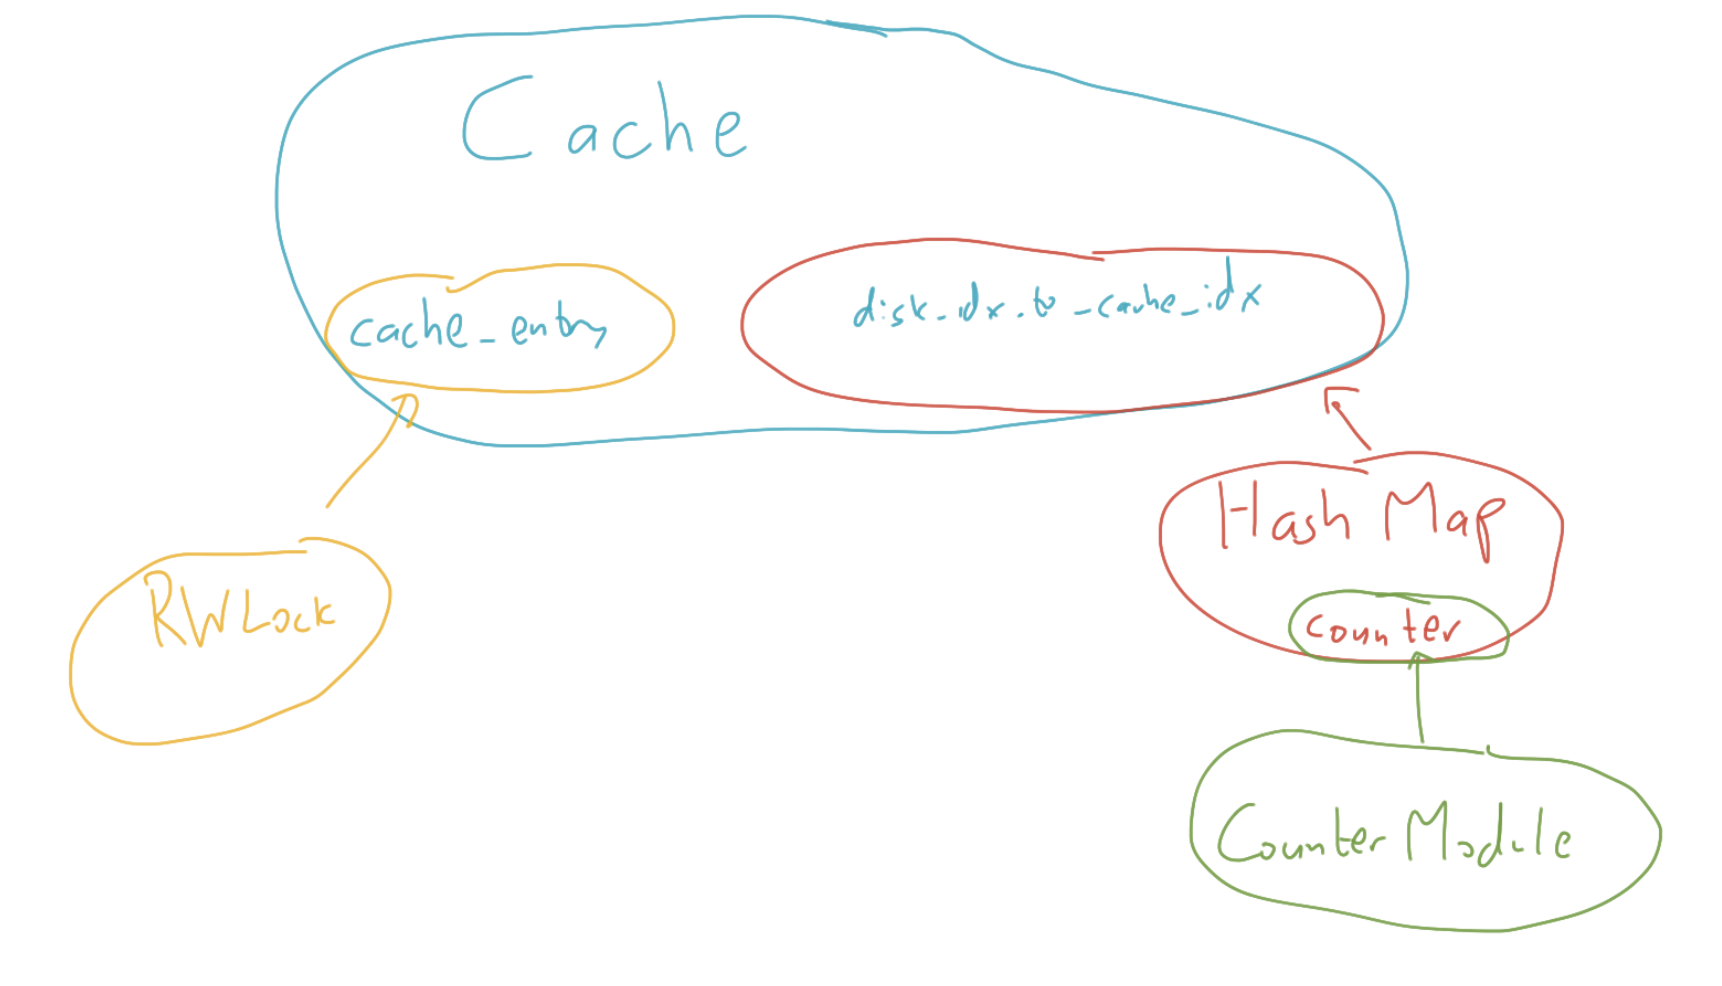 Cache
cache_entry
disk_idx_to_cache_idx
Hash Map
RWLock
counter
Counter Module